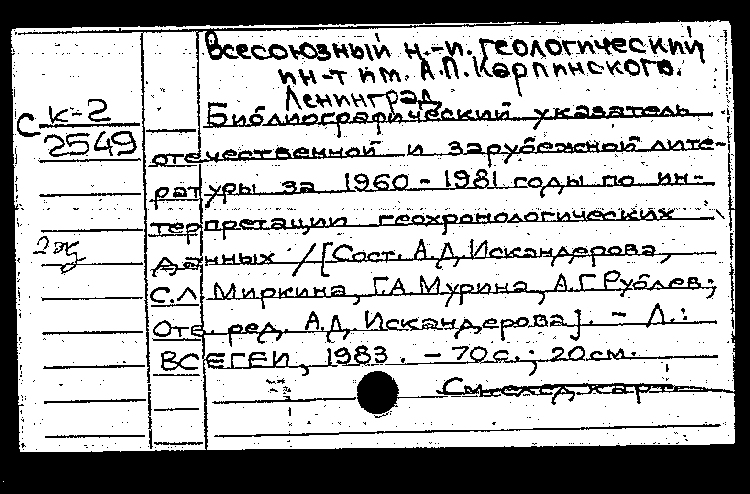 Всесоюзный н.-и. геологический
ин-т им. А.П. Карпинского.
Ленинград
С к-2
2549
Библиографический указатель
отечественной и зарубежной лите-
ратуры за 1960-1981 годы по ин-
терпретации геохронологических
данных / [Сост. А.Д. Искандерова,
С.Л. Миркина, Г.А. Мурина, А.Г. Рублев;
Отв. ред. А.Д. Искандерова]. - Л.:
ВСЕГЕИ, 1983. - 70 с.; 20 см.
См. след. карт.